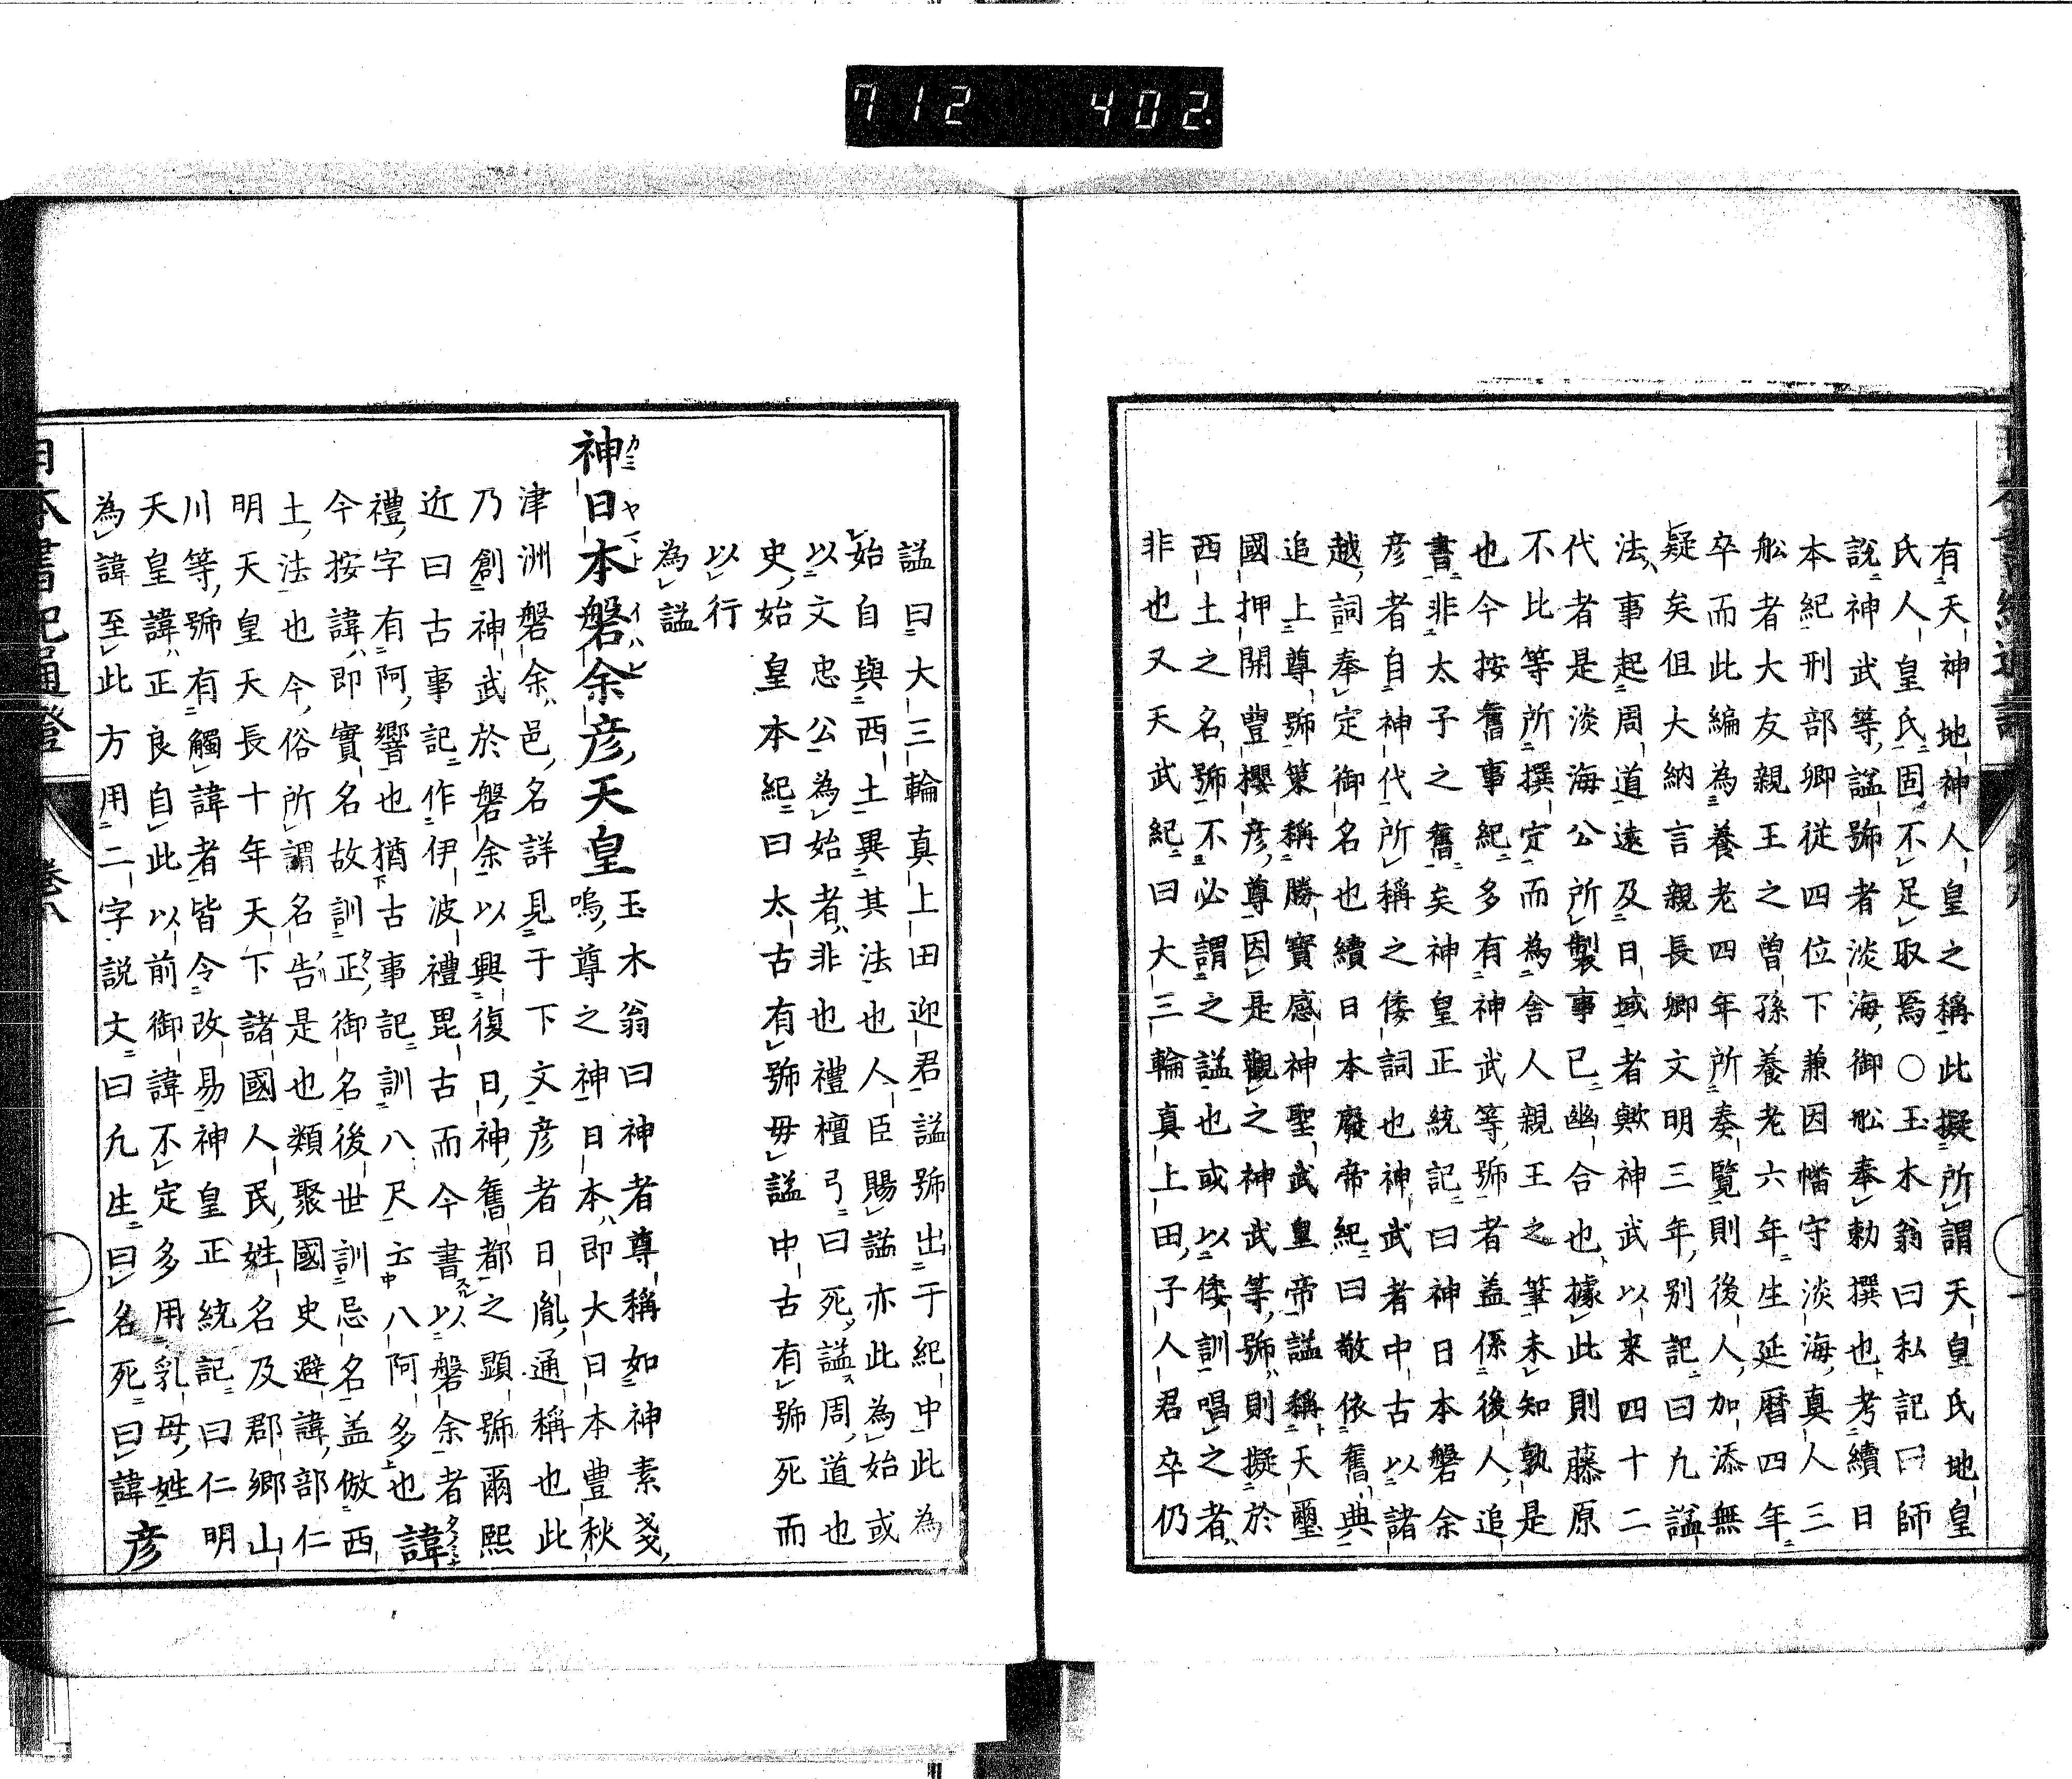 712 402.
有天神地神人皇之稱此擬所謂天皇氏地皇
氏人皇氏固不足取焉○玉木翁曰私記曰師
說神武等諡號者淡海御舩奉勅撰也考續日
本紀刑部卿從四位下兼因幡守淡海真人三
舩者大友親王之曾孫養老六年生延暦四年
卒而此編為養老四年所奏覽則後人加添無
疑矣但大納言親長卿文明三年別記曰凢諡
法事起周道遠及日域者歟神武以来四十二
代者是淡海公所製事已幽合也據此則藤原
不比等所撰定而為舎人親王之筆未知孰是
也今按舊事紀多有神武等號者盖係後人追
書非太子之舊矣神皇正統記曰神日本磐余
彦者自神代所稱之倭詞也神武者中古以諸
越詞奉定御名也續日本廢帝紀曰敬依舊典
追上尊號策稱勝寶感神聖武皇帝諡稱天璽
國押開豊櫻彦尊因是觀之神武等號則擬於
西土之名號不必謂之諡也或以倭訓唱之者
非也又天武紀曰大三輪真上田子人君卒仍
諡曰大三輪真上田迎君諡號出于紀中此為
始自與西土異其法也人臣賜諡亦此為始或
以文忠公為始者非也禮檀弓曰死諡周道也
史始皇本紀曰太古有號毋諡中古有號死而
以行
為諡
神日本磐余彦天皇玉木翁曰神者尊稱如神素戔
嗚尊之神日本即大日本豊秋
津洲磐余邑名詳見于下文彦者日胤通稱也此
乃創神武於磐余以興復日神舊都之顕號爾熙
近曰古事記作伊波禮毘古而今書以磐余者
禮字有阿響也猶古事記訓八尺云八阿多也諱
今按諱即實名故訓正御名後世訓忌名盖倣西
土法也今俗所謂名告是也類聚國史避諱部仁
明天皇天長十年天下諸國人民姓名及郡鄉山
川等號有觸諱者皆令改易神皇正統記曰仁明
天皇諱正良自此以前御諱不定多用乳母姓
為諱至此方用二字說文曰凢生曰名死曰諱彦
日本書紀通證
卷八